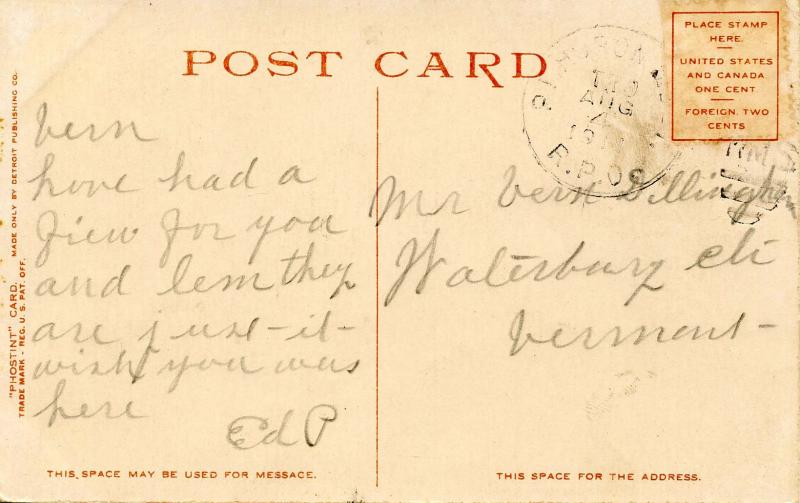 POST CARD
PLACE STAMP
HERE.
UNITED STATES
AND CANADA
ONE CENT
FOREIGN, TWO
CENTS
AUG
R.P.O.
"PHOSTINT" CARD. MADE ONLY BY DETROIT PUBLISHING CO.
TRADE MARK - REG. U.S. PAT. OFF.
Vern
have had a
few for you
and Lem they
are just-it-
wish you was
here
Ed P
Mr Vern Dillingham
Waterbury
Vermont-
THIS SPACE MAY BE USED FOR MESSAGE.
THIS SPACE FOR THE ADDRESS.